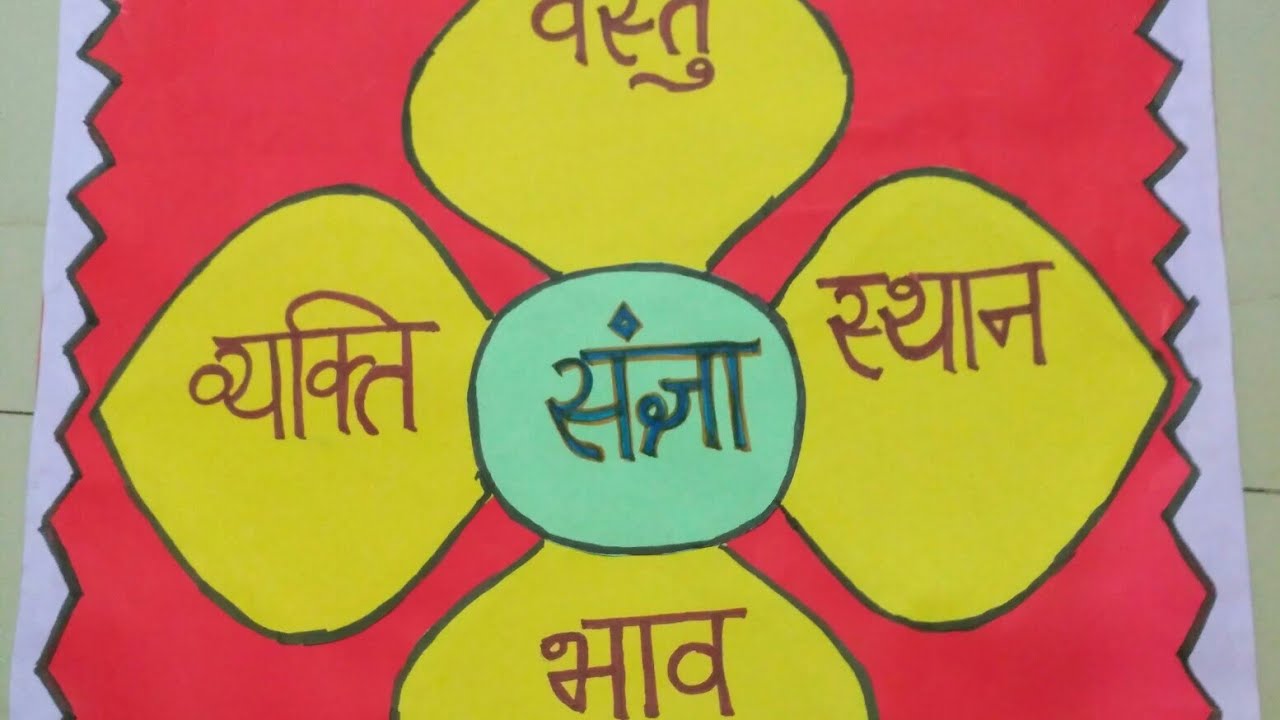 वस्तु
व्यक्ति
संज्ञा
स्थान
भाव